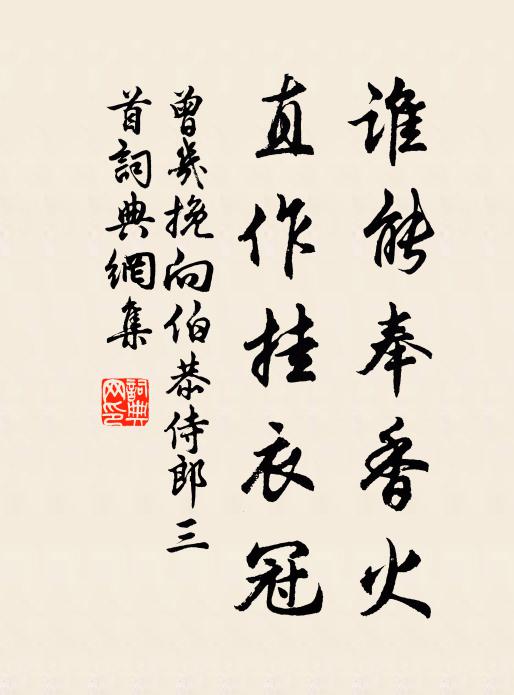 誰能奉香火
直作挂衣冠
曾幾挽向伯恭侍郎三
首詞典網集
詞典
网印